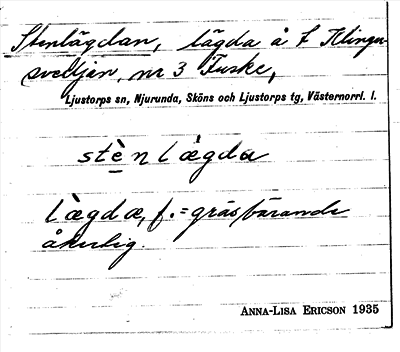 Stenlägdan, lägda å f. Klingersvedjan, nr 3 Fuske,
Ljustorps sn, Njurunda, Sköns och Ljustorps tg, Västernorrl. l.
stèn lægda
lægdæ, f. = gräsbärande
åkerlig.
ANNA-LISA ERICSON 1935